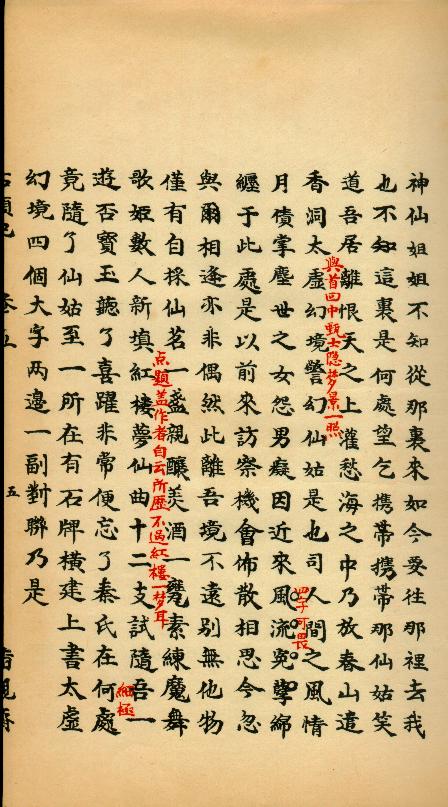 神仙姐姐不知從那裏來如今要往那裡去我
也不知這裏是何處望乞携帶携帶那仙姑笑
道吾居離恨天之上灌愁海之中乃放春山遣
與首回中甄士隱夢景一照
香洞太虛幻境警幻仙姑是也司人間之風情
四字可畏
月債掌塵世之女怨男癡因近來風流冤孽綿
纏于此處是以前來訪察機會佈散相思今忽
與爾相逢亦非偶然此離吾境不遠别無他物
僅有自採仙茗一盞親釀美酒一甕素練魔舞
点題盖作者自云所歷不過紅樓一梦耳
歌姬數人新填紅樓夢仙曲十二支試隨吾一
細極
遊否寳玉聽了喜躍非常便忘了秦氏在何處
竟隨了仙姑至一所在有石牌横建上書太虛
幻境四個大字两邊一副對聯乃是
五